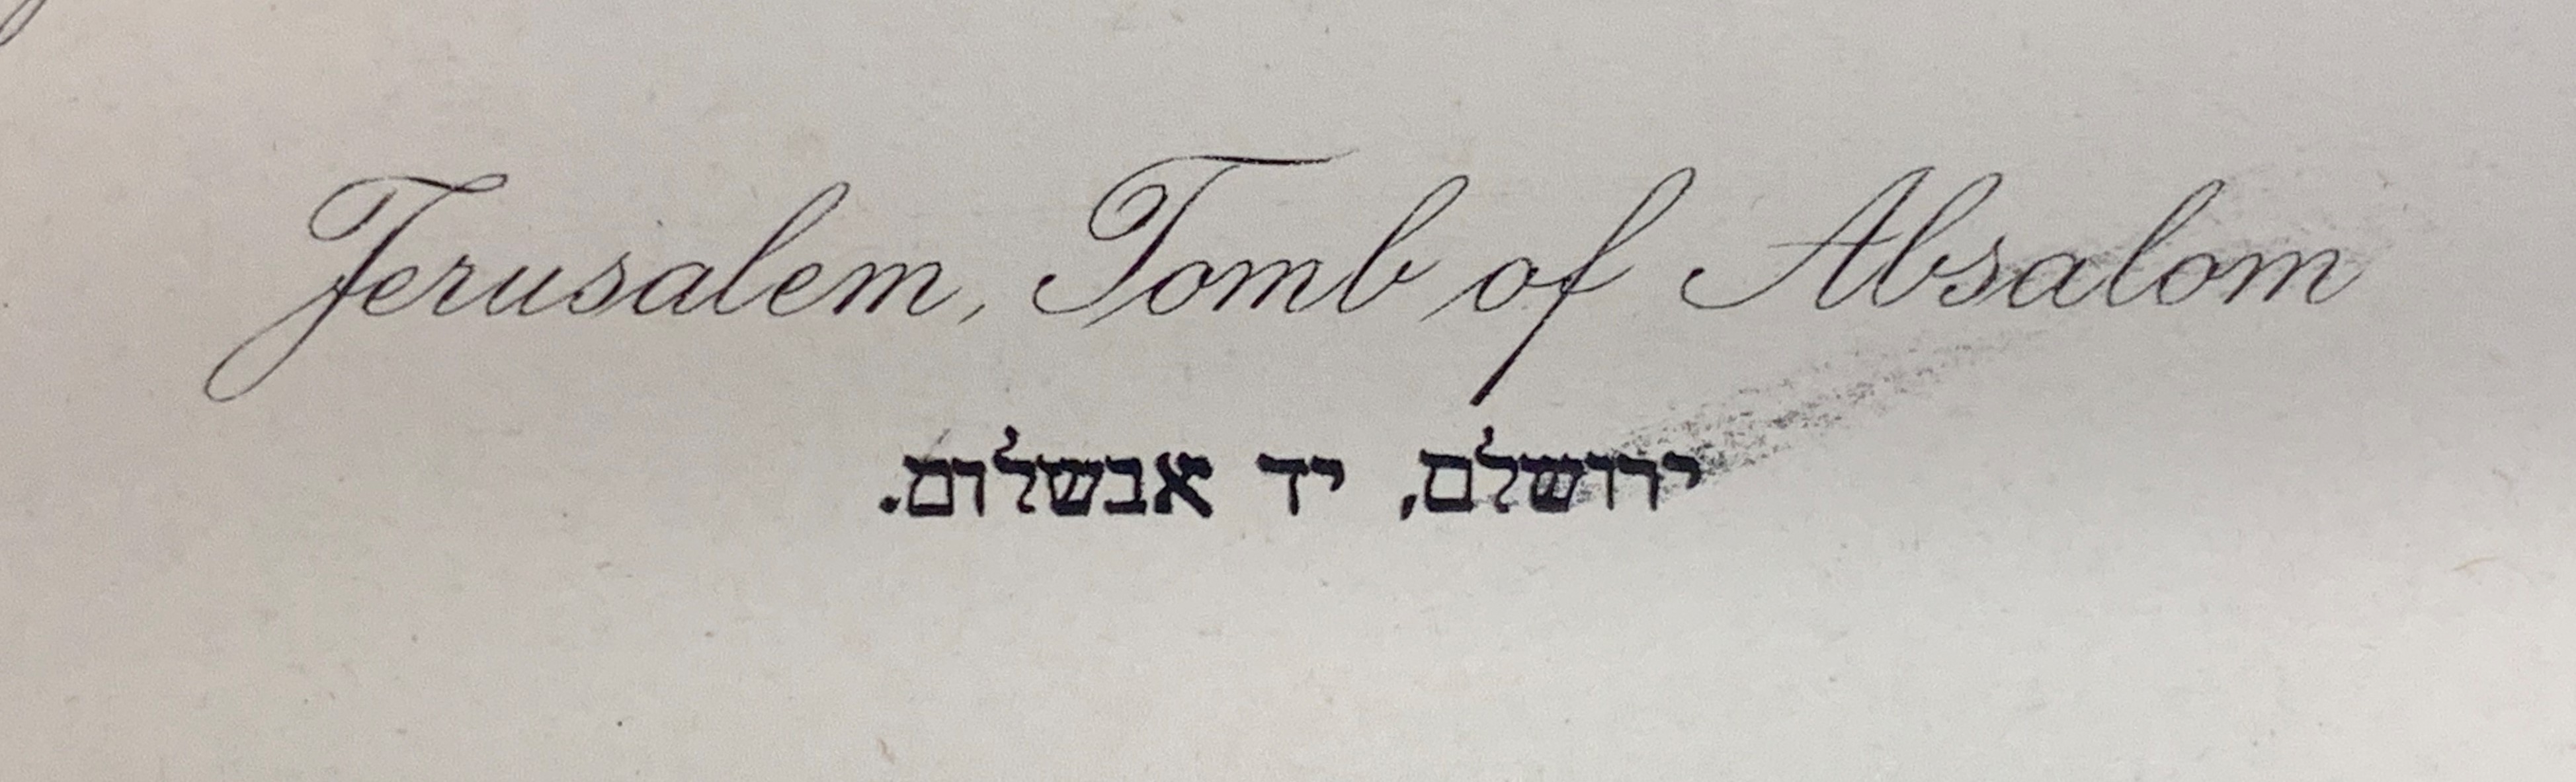 Jerusalem, Tomb of Absalom
ירושלם, יד אבשלום.